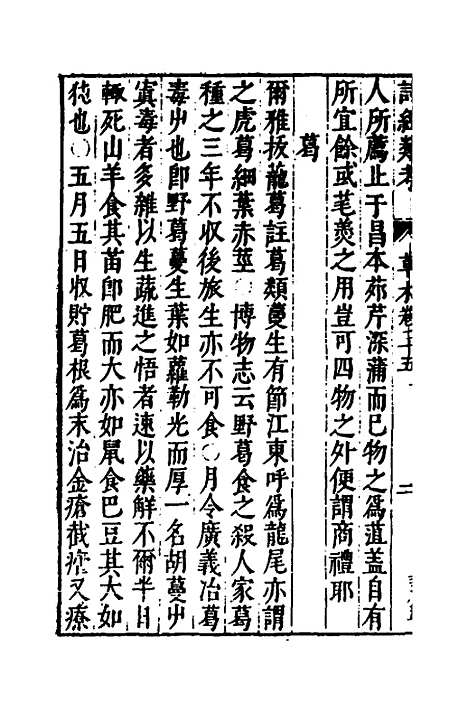 詩經類考 草木卷二十五 二
人所薦止于昌本茆芹深蒲而已物之爲葅蓋自有
所宜餘或芼羮之用豈可四物之外便謂商禮耶
葛
爾雅拔龍葛註葛類蔓生有節江東呼爲龍尾亦謂
之虎葛細葉赤莖 博物志云野葛食之殺人家葛
種之三年不收後旅生亦不可食○月令廣義冶葛
毒屮也卽野葛蔓生葉如蘿勒光而厚一名胡蔓屮
寘毒者多雜以生蔬進之悟者速以藥解不爾半日
輒死山羊食其苗卽肥而大亦如鼠食巴豆其大如
㹠也○五月五日收貯葛根爲末治金瘡截瘧又療